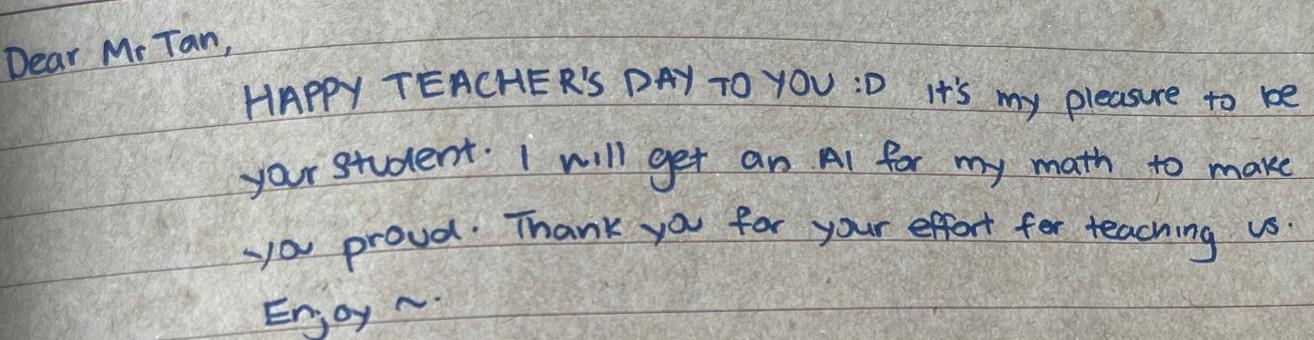 Dear Mr Tan,
HAPPY TEACHER'S DAY TO YOU :D It's my pleasure to be
your student. I will get an A1 for my math to make
you proud. Thank you for your effort for teaching us.
Enjoy ~.